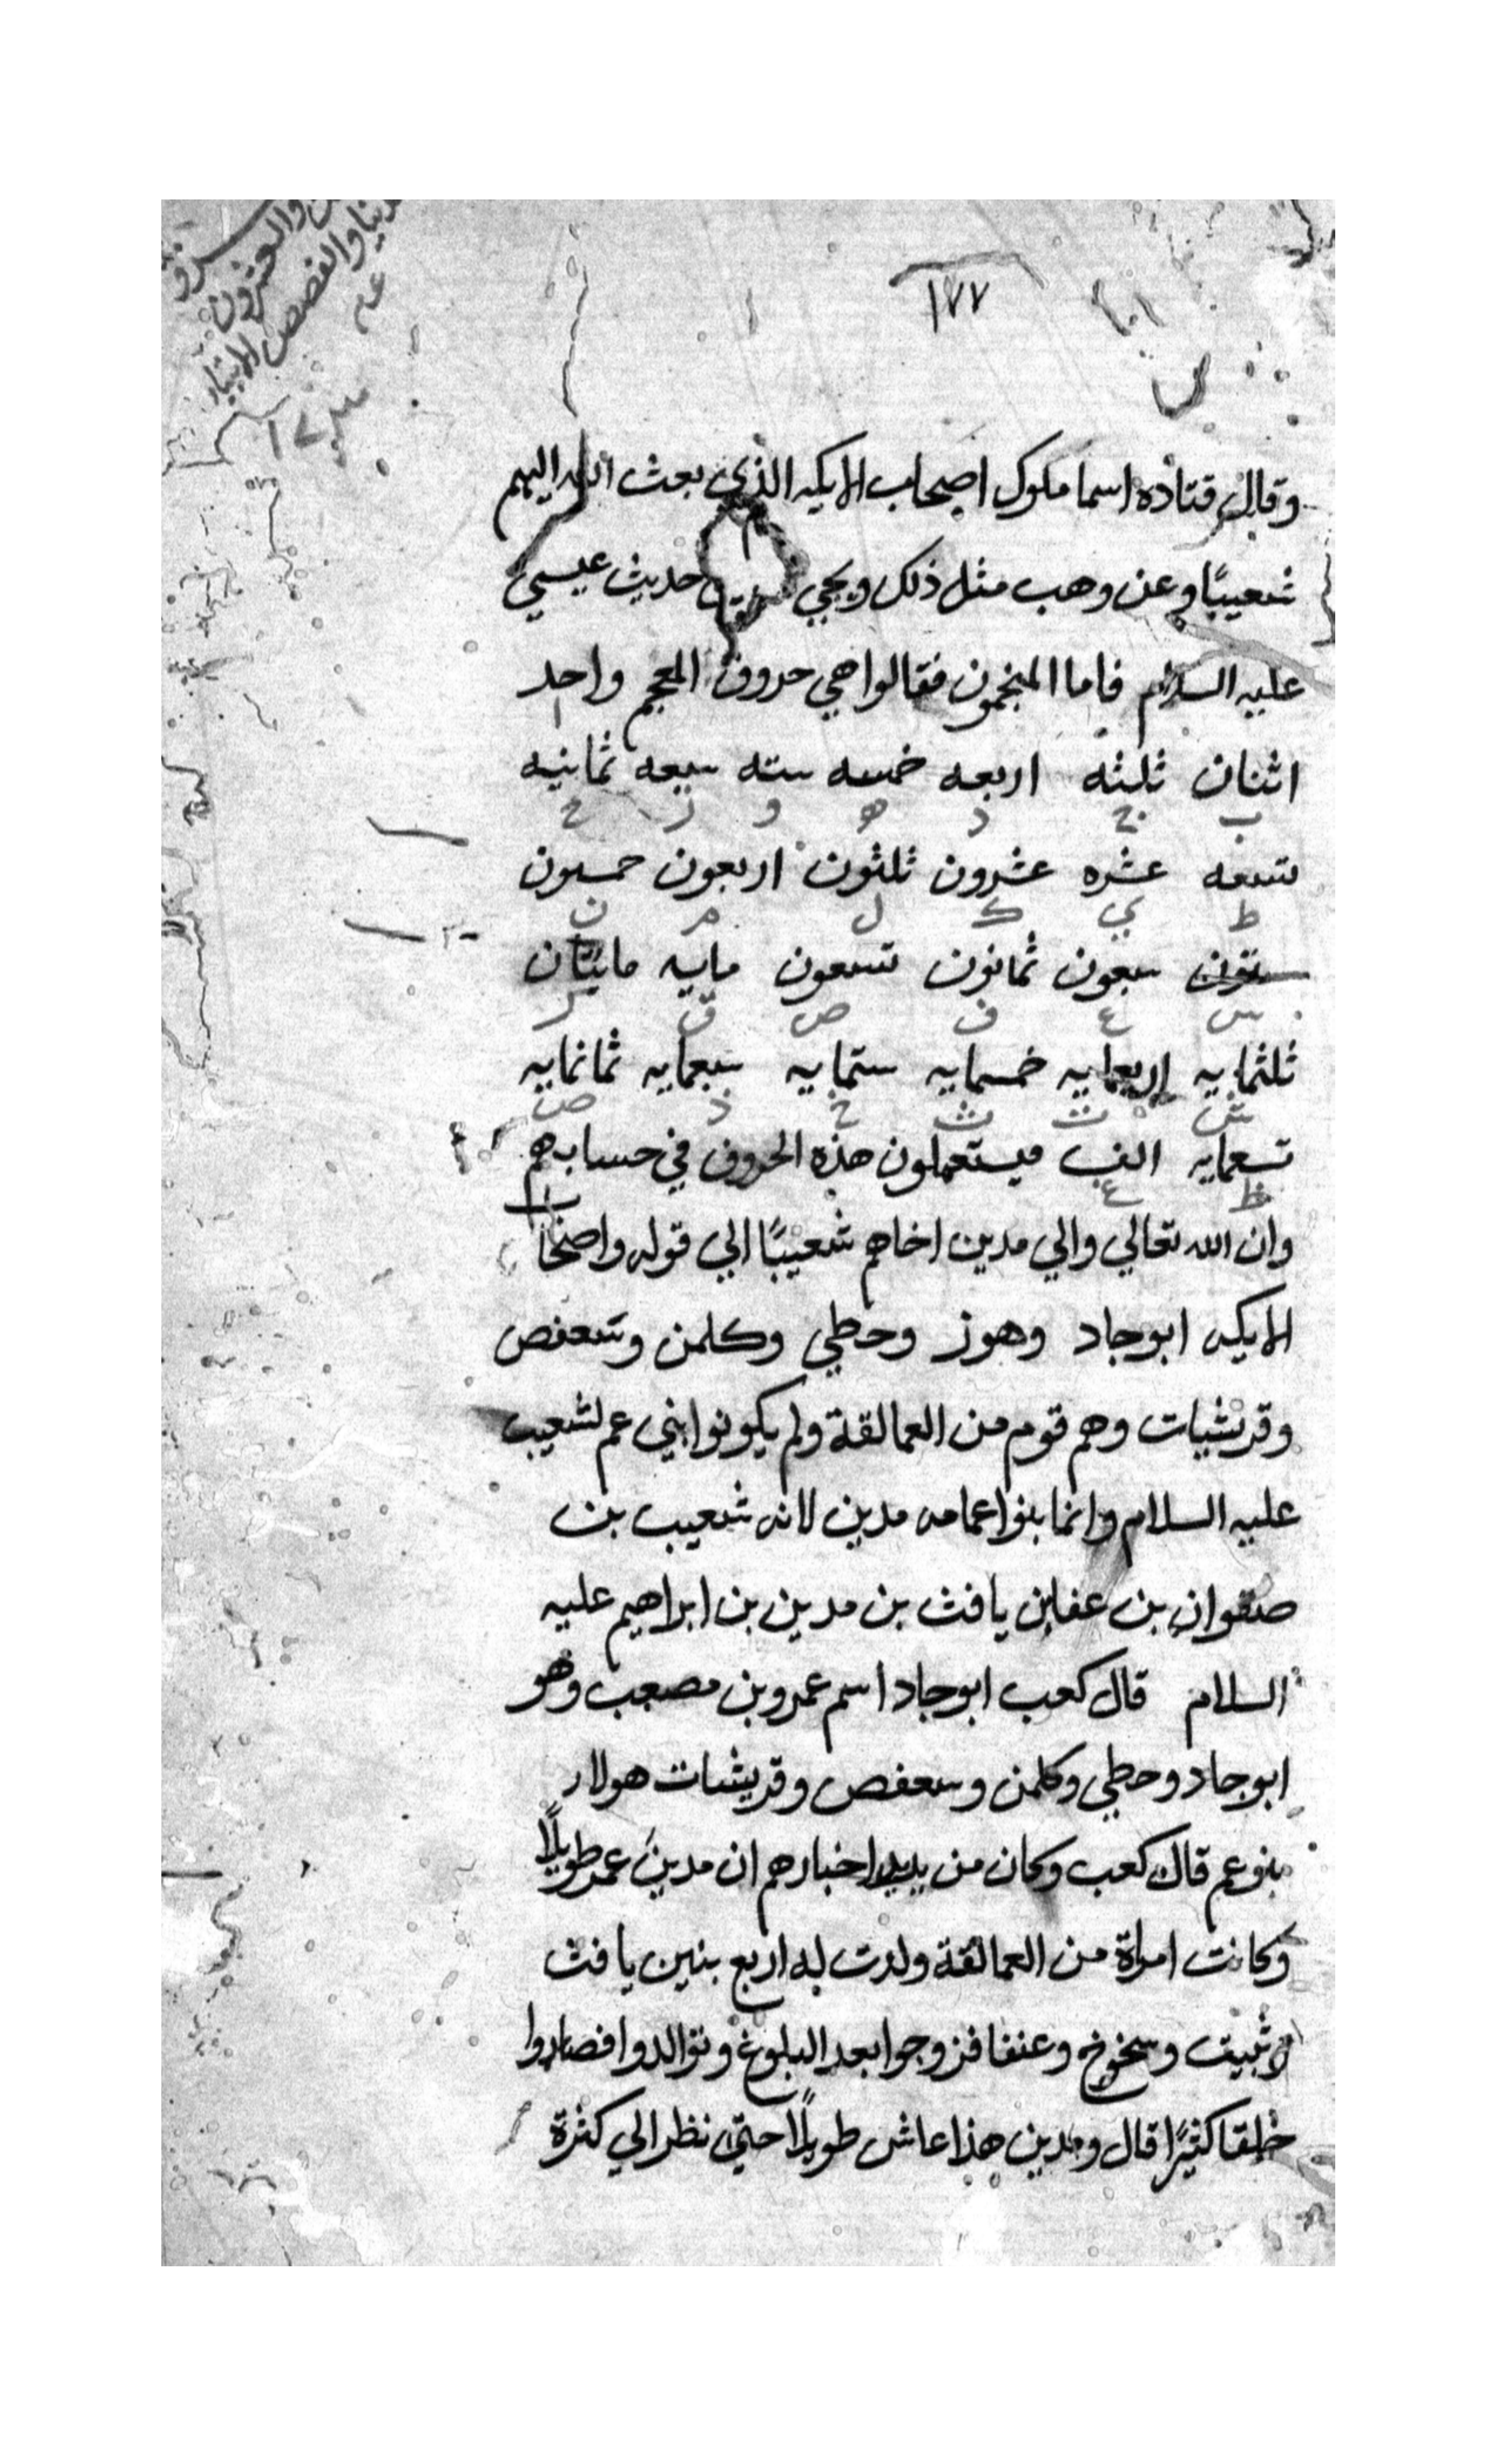 ١٧٧
وقال قتاده اسما ملوك اصحاب الايكه الذي بعث الله اليهم
شعيبًا وعن وهب مثل ذلك ويجي حديث عيسي
عليه السلام فاما المنجمون فقالوا هي حروف المعجم واحد
ا
اثنان ثلثه اربعه خمسه سته سبعه ثمانيه
ب ج د ه و ز ح
تسعه عشره عشرون ثلثون اربعون خمسون
ط ي ك ل م ن
ستون سبعون ثمانون تسعون مايه مايتان
س ع ف ص ق ر
ثلثمايه اربعمايه خمسمايه ستمايه سبعمايه ثمانمايه
ش ت ث خ ذ ض
تسعمايه الف فيستعملون هذه الحروف في حسابهم
ظ غ
وان الله تعالي والي مدين اخاهم شعيبًا الي قوله واصحا
الايكه ابوجاد وهوز وحطي وكلمن وسعفص
وقريشيات وهم قوم من العمالقة ولم يكونوا بني عم لشعيب
عليه السلام وانما بنوا عمامه مدين لانه شعيب بن
صفوان بن عفابن يافث بن مدين بن ابراهيم عليه
السلام قال كعب ابوجاد اسم عمرو بن مصعب وهو
ابوجاد وحطي وكلمن وسعفص وقريشات هولاء
بنوعم قال كعب وكان من اخبارهم ان مدينَ عمر طويلًا
وكانت امراة من العمالقة ولدت له اربع بنين يافث
وثبيت وسخوخ وعنفا فزوجوا بعد البلوغ وتوالدوا فصاروا
خلقا كثيرًا قال ومدين هذا عاش طويلًا حتي نظر الي كثرة